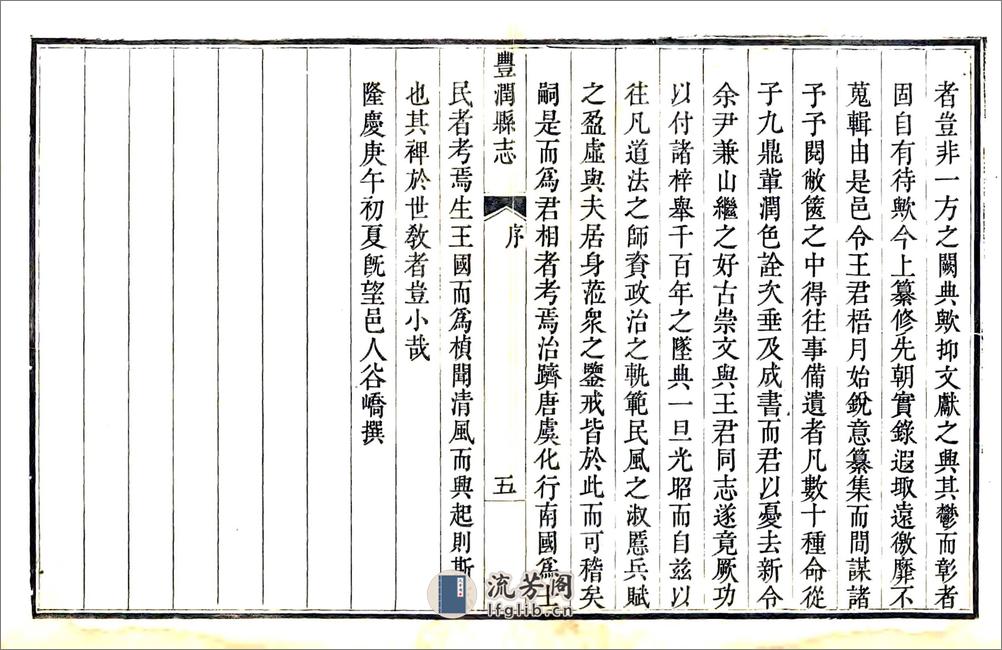 者豈非一方之闕典歟抑文獻之興其鬱而彰者
固自有待歟今上纂修先朝實錄遐陬遠徼靡不
蒐輯由是邑令王君梧月始銳意纂集而問謀諸
予予閱敝篋之中得往事備遺者凡數十種命從
子九鼎輩潤色詮次垂及成書而君以憂去新令
余尹兼山繼之好古崇文與王君同志遂竟厥功
以付諸梓舉千百年之墜典一旦光昭而自兹以
往凡道法之師資政治之軌範民風之淑慝兵賦
之盈虛與夫居身蒞衆之鑒戒皆於此而可稽矣
嗣是而爲君相者考焉治躋唐虞化行南國爲士
豐潤縣志
序
五
民者考焉生王國而爲楨聞清風而興起則斯
也其裨於世教者豈小哉
隆慶庚午初夏旣望邑人谷嶠撰
流芳阁
lfglib.cn